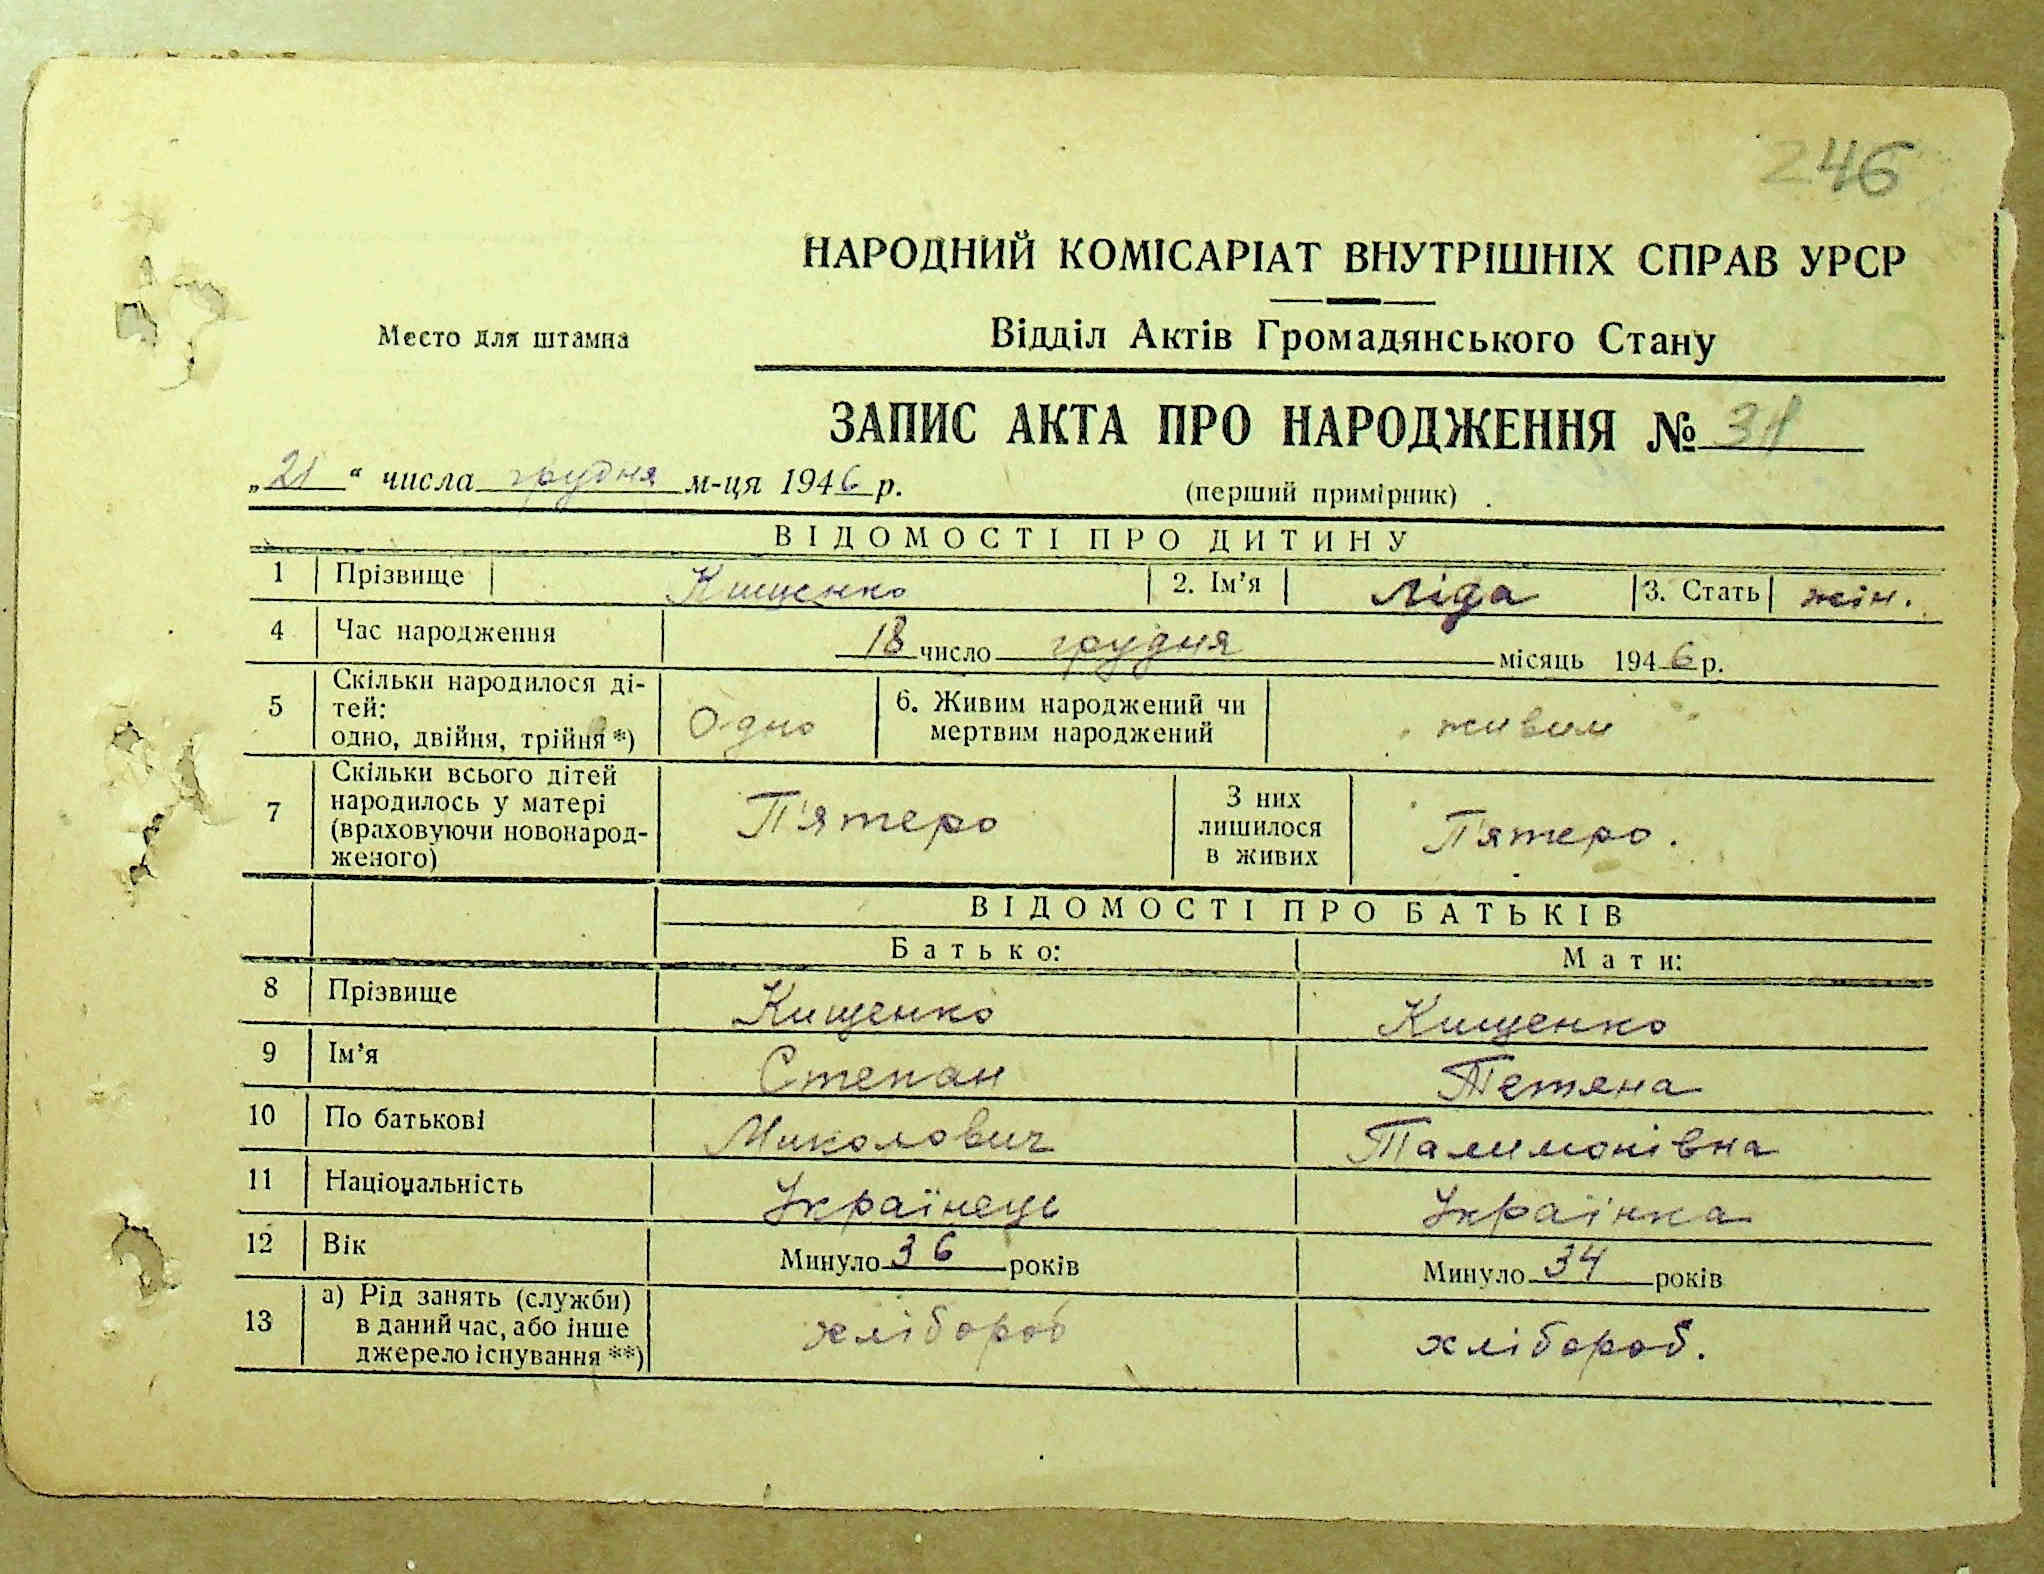 246
НАРОДНИЙ КОМІСАРІАТ ВНУТРІШНІХ СПРАВ УРСР
Место для штампа
Відділ Актів Громадянського Стану
ЗАПИС АКТА ПРО НАРОДЖЕННЯ №
„21“ числа грудня м-ця 1946 р.
(перший примірник)
ВІДОМОСТІ ПРО ДИТИНУ
1 Прізвище Кищенко 2. Ім’я Ліда 3. Стать жін.
4 Час народження 18 число грудня місяць 1946 р.
5 Скільки народилося ді-
тей:
одно, двійня, трійня *) Одно 6. Живим народжений чи
мертвим народжений живим
7 Скільки всього дітей
народилось у матері
(враховуючи новонарод-
женого) П'ятеро З них
лишилося
в живих П'ятеро.
ВІДОМОСТІ ПРО БАТЬКІВ
Батько: Мати:
8 Прізвище Кищенко Кищенко
9 Ім’я Степан Тетяна
10 По батькові Миколович Талимонівна
11 Національність Українець Українка
12 Вік Минуло 36 років Минуло 34 років
13 а) Рід занять (служби)
в даний час, або інше
джерело існування **) хлібороб хлібороб.